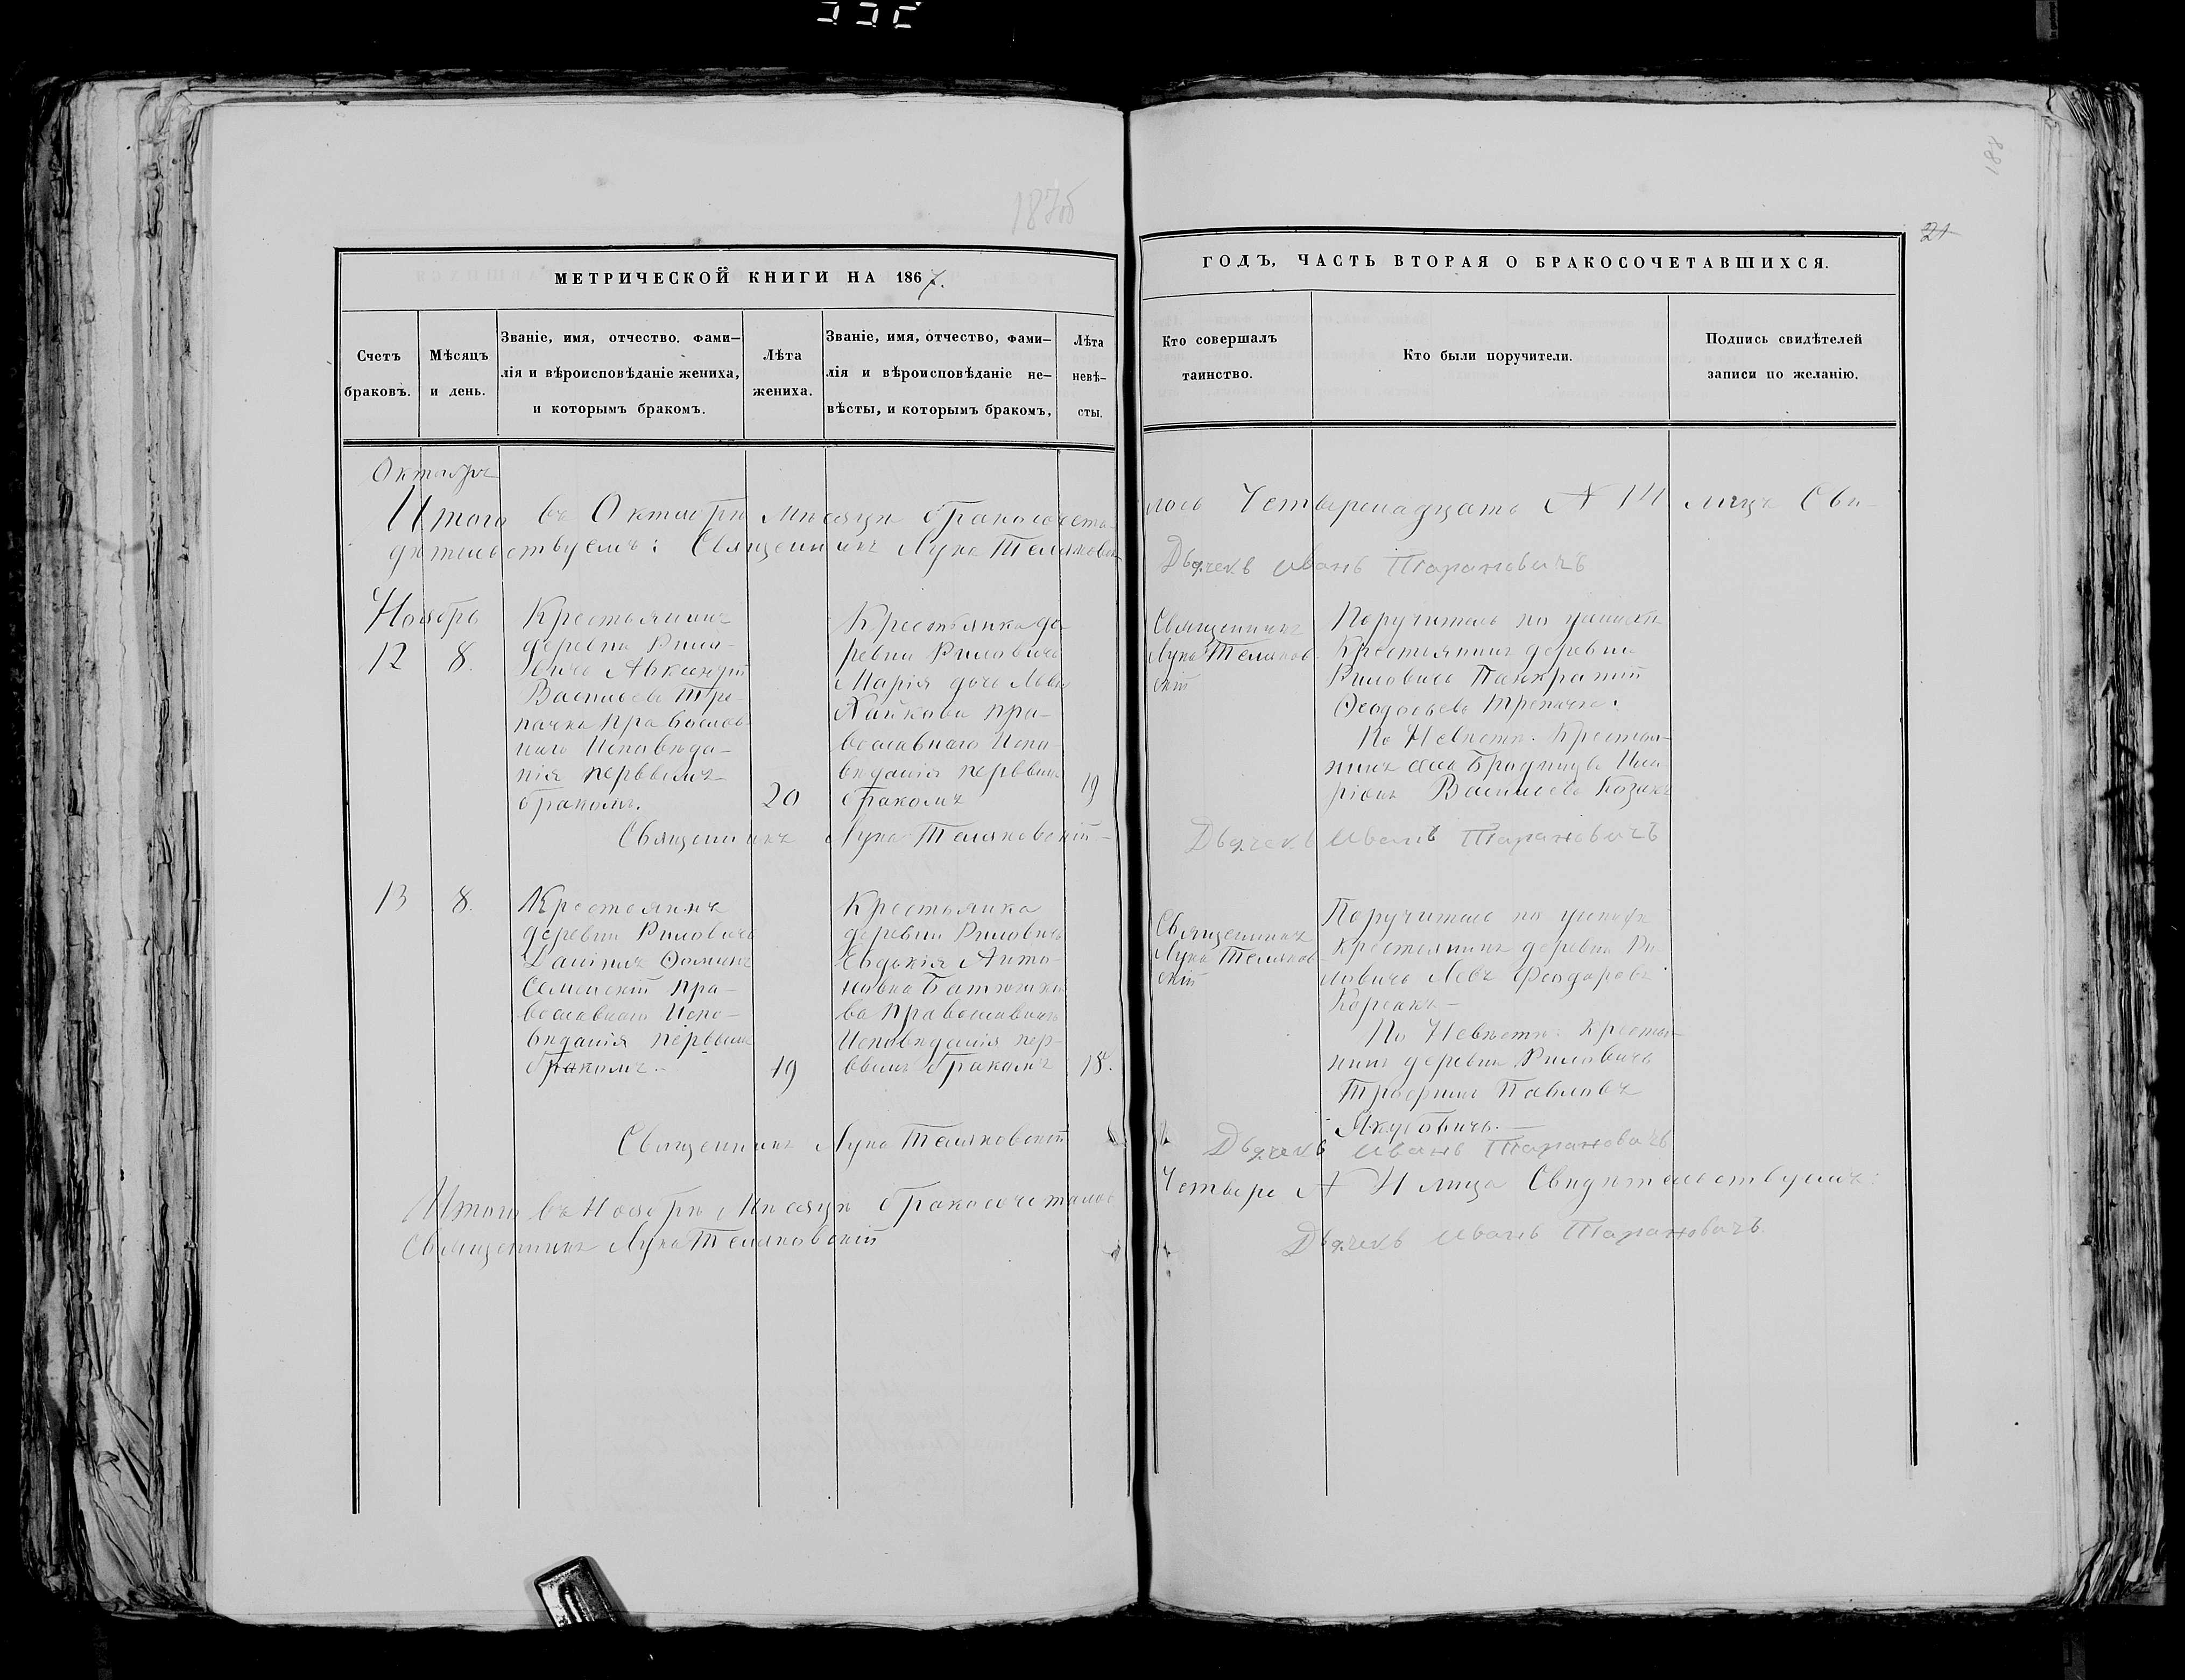 187об
188
21
МЕТРИЧЕСКОЙ КНИГИ НА 1867.
ГОДЪ, ЧАСТЬ ВТОРАЯ О БРАКОСОЧЕТАВШИХСЯ.
Счетъ
браковъ.
Мѣсяцъ
и день.
Званіе, имя, отчество. фами-
лія и вѣроисповѣданіе жениха,
и которымъ бракомъ.
Лѣта
жениха.
Званіе, имя, отчество, фами-
лія и вѣроисповѣданіе не-
вѣсты, и которымъ бракомъ,
Лѣта
невѣ-
сты.
Кто совершалъ
таинство.
Кто были поручители.
Подпись свидѣтелей
записи по желанію.
Октябрь
Итого въ Октябрѣ Мѣсяцѣ бракосочета-
лось Четыренадцать № 14 лицъ Сви-
дѣтельствуемъ: Священникъ Лука Теляковскій
Дьячекъ Иванъ Тарановичъ
Ноябрь
12
8.
Крестьянинъ
деревни Рило-
вичь
Васильевъ Тре-
пачка православ-
наго Исповѣда-
нія первымъ
бракомъ.
20
Крестьянка де
ревни Риловичь
Марія дочь Льва
Хайкова пра-
вославнаго Испо-
вѣданія первымъ
бракомъ
19
Священникъ
Лука Теляков-
скій
Поручитель по женихѣ
Крестьянинъ деревни
Риловичь Панкратій
Ѳеодосьевъ Трепачка.
По Невѣстѣ. Крестья-
нинъ села Бродницъ Ила-
ріонъ Васильевъ Козакъ
Священникъ Лука Теляковскій
Дьячекъ Иванъ Тарановичъ
13
8.
Крестьянинъ
деревни Риловичь
Даніилъ Ѳоминъ
Семенскій пра-
вославнаго Испо-
вѣданія первымъ
бракомъ.
19
Крестьянка
деревни Риловичь
Евдокія Анто-
новна
православнаго
Исповѣданія пер-
вымъ бракомъ
18.
Священникъ
Лука Теляков-
скій
Поручитель по женихѣ
Крестьянинъ деревни Ри-
ловичь Левъ Феодоровъ
Корсакъ
По Невѣстѣ: Крестья-
нинъ деревни Риловичь
Павловъ
Якубовичь.
Священникъ Лука Теляковскій
Дьячекъ Иванъ Тарановичъ
Итого въ Ноябрѣ Мѣсяцѣ бракосочеталось
Четыре № 4 лица Свидѣтельствуемъ:
Священникъ Лука Теляковскій
Дьячекъ Иванъ Тарановичъ